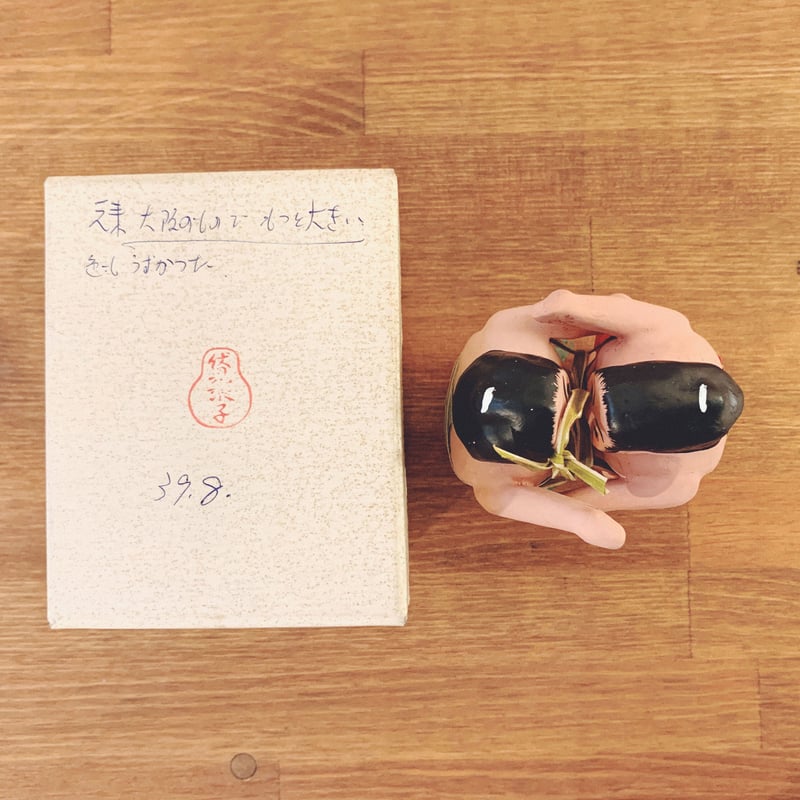 元来 大阪のもので もっと大きい、
色も うすかった
張子
39.8.